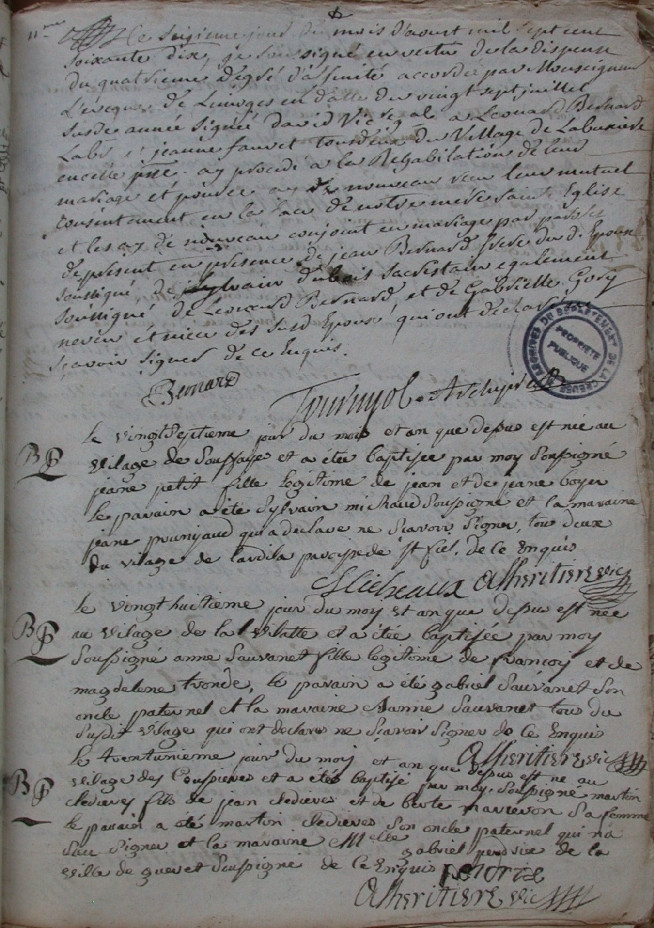 11eme
Ce seizieme jour du mois d'aoust mil sept cent
soixante dix, je soussigné en vertu de la dispense
du quatrieme dégré d'afinité accordée par Monseigneur
L'évêque de Limoges en datte du vingt sept juillet
susde année signée david Vic. gal a Leonard Bernard
Labé et jeanne fauvet tous deux du Village de
en cette psse. ay procedé a la Rehabilitation de leur
mariage et pour ce ay de nouveau recu leur mutuel
consentement en la face de notre mere Sainte Eglise
et les ay de nouveau conjoint en mariage par paroles
de présent en presence de jean Bernard frere du d. Epoux
soussigné, de Sylvain dubois Sacristain egalement
soussigné de Leonard Bernard, et de Gabrielle Gory
neveu et niece des susd Epoux, qui ont declaré ne
scavoir signer de ce Enquis.
ARCHIVES DU DEPARTEMENT DE LA CREUSE
PROPRIETE PUBLIQUE
Bernard
Tournyol Archiprêtre
BP
Le vingt septieme jour du mois et an que depuis est née au
vilage de et a été baptisée par moy Soussigné
jeane petit fille legitime de jean et de jeane boyer
le parain a été Sylvain michaud Soussigné et la maraine
jeane prunjaud qui a declaré ne Scavoir Signer, tous deux
du vilage de paroisse de St fiel, de ce Enquis
Micheaux Alheritiere vic
BP
le vingt huitieme jour du moy et an que depuis est née
au vilage de la Vilatte et a étée baptisée par moy
Soussigné anne Sauvanet fille legitime de francois et de
magdelene tronde, le parain a été gabriel Sauvanet Son
oncle paternel et la maraine anne Sauvanet tous du
Susdit vilage qui ont declarés ne Scavoir Signer de ce Enquis
Alheritiere vic
BP
le trentunieme jour du moy et an que depuis est né au
vilage des Coussieres et a été baptisé par moy Soussigné martin
fils de jean et de sa femme
le parain a été martin Son oncle paternel qui na
Sau Signer et la maraine Melle gabriel de la
ville de gueret Soussigné de ce Enquis
Alheritiere vic